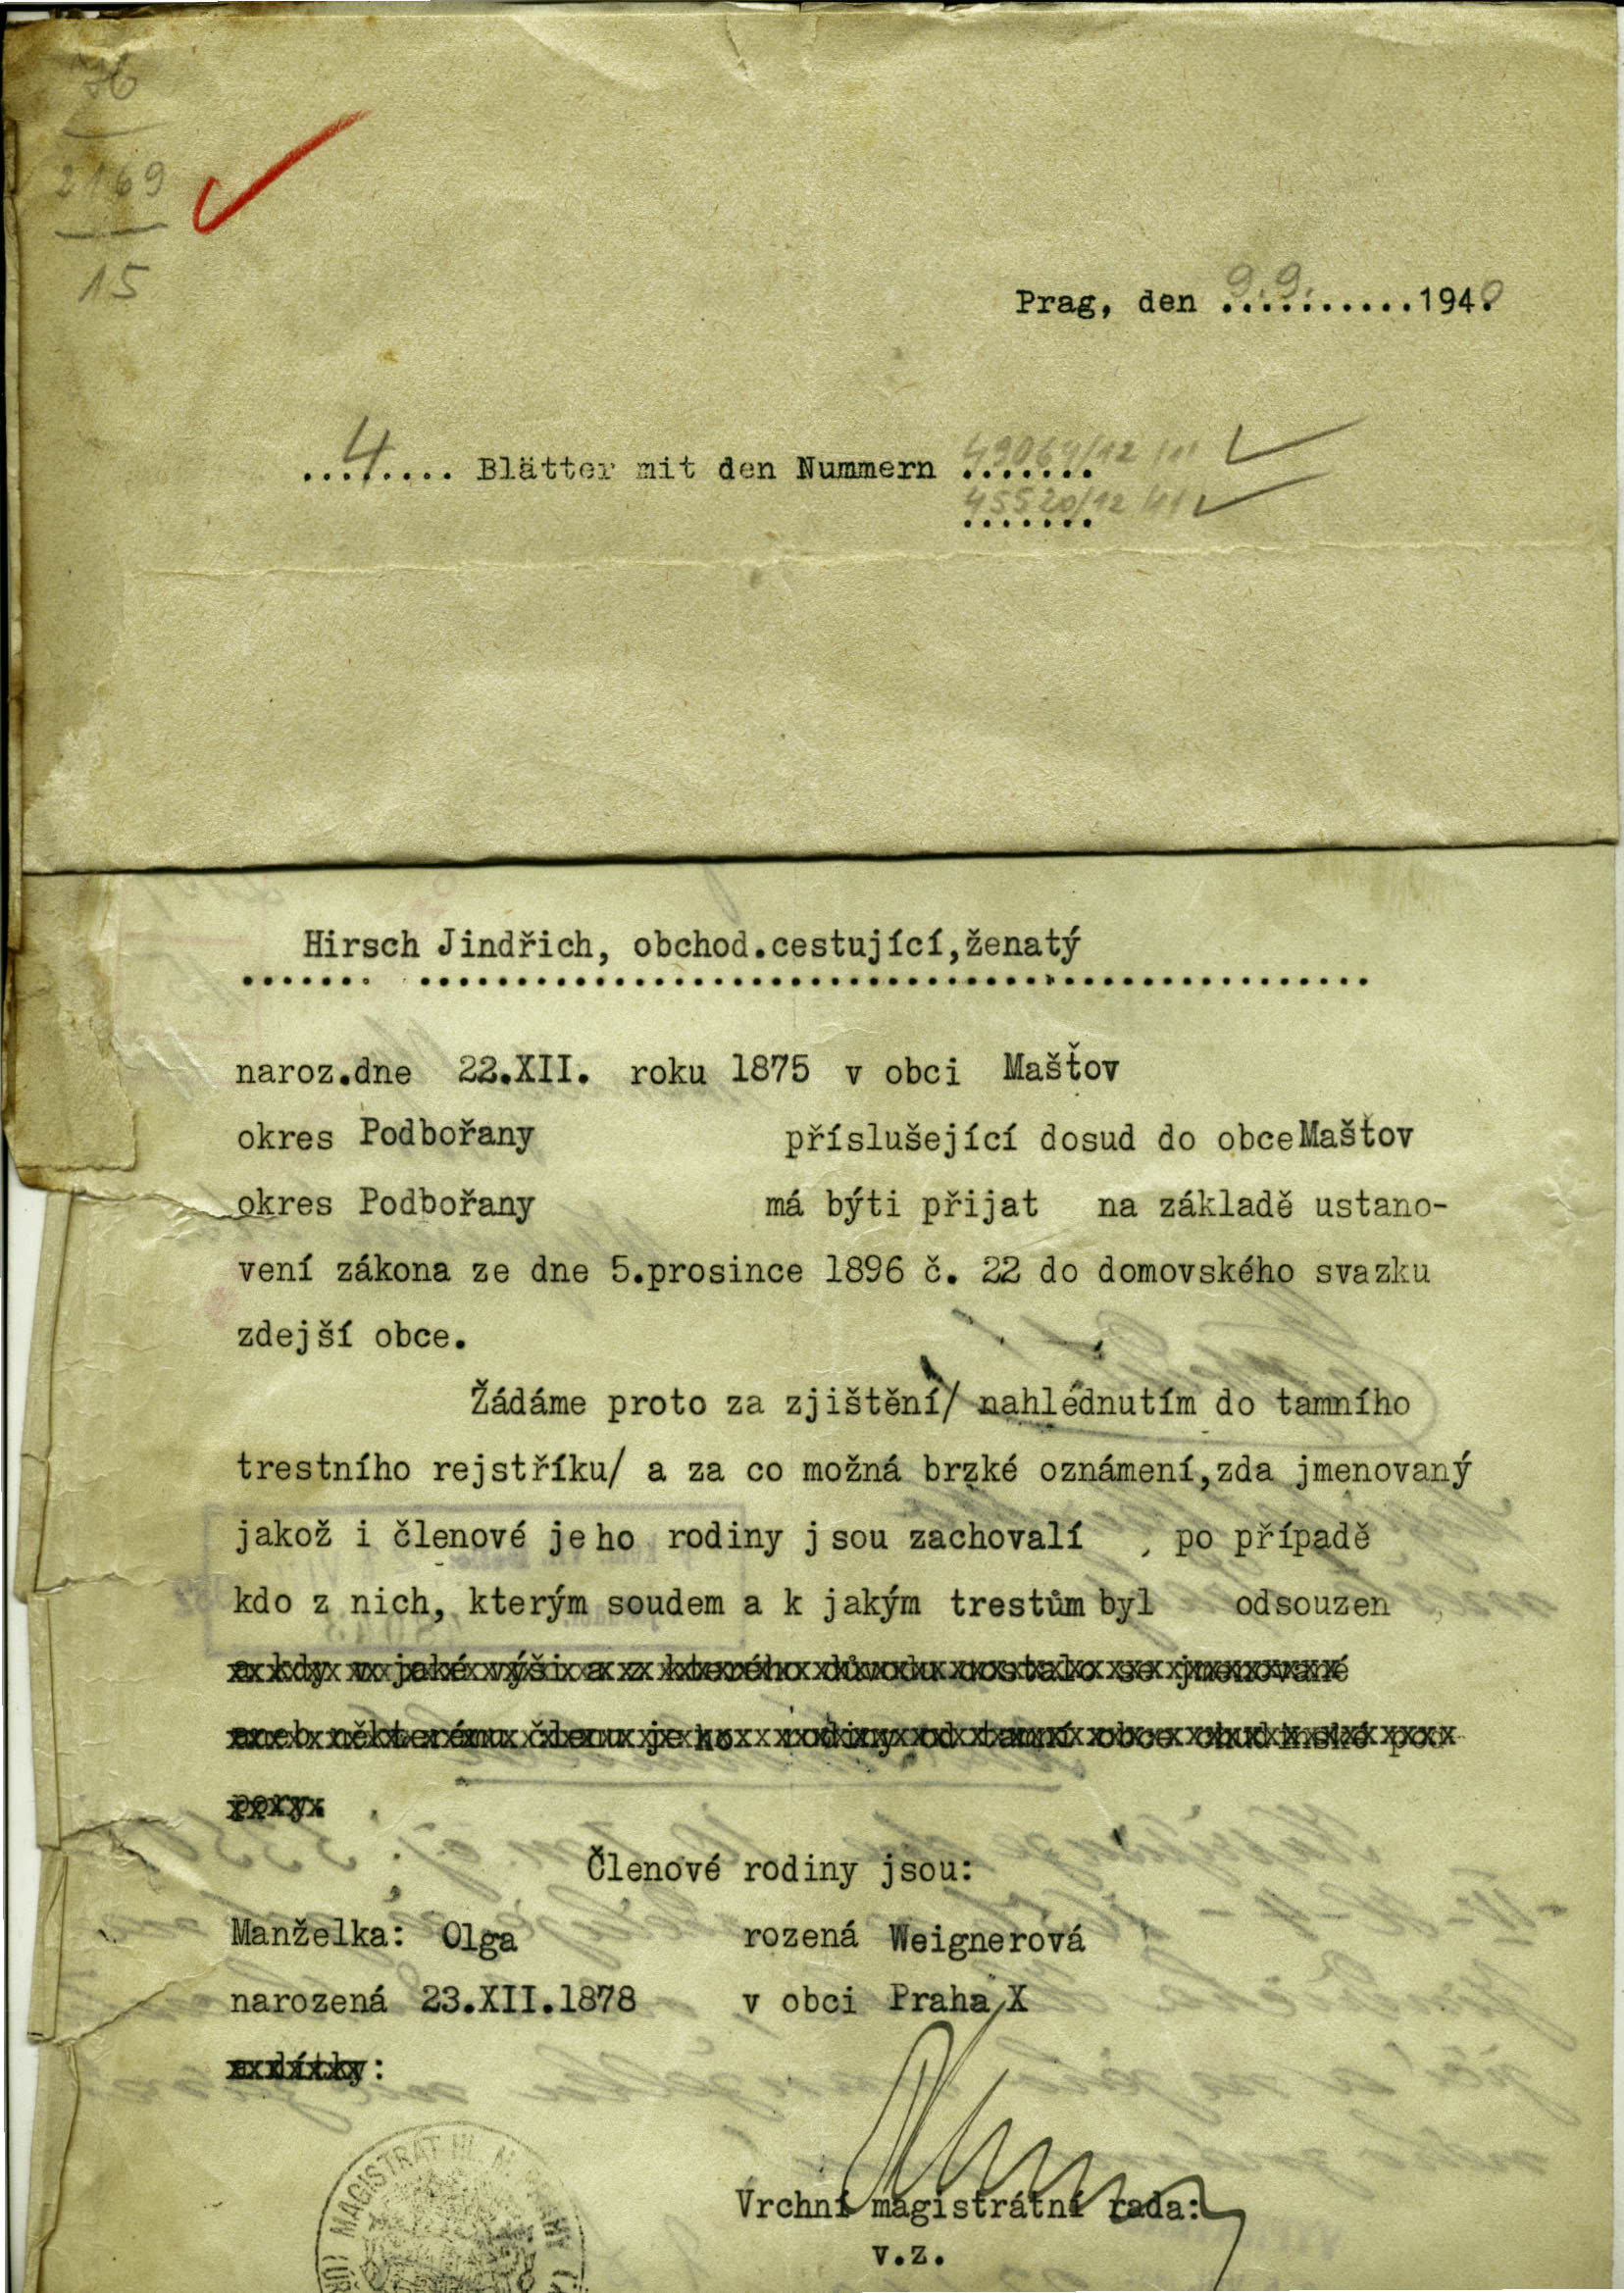 2169
15
Prag, den 9.9. ..........1940
....4.... Blätter mit den Nummern .......
.......
Hirsch Jindřich, obchod.cestující,ženatý
naroz.dne 22.XII. roku 1875 v obci Mašťov
okres Podbořany příslušející dosud do obce Mašťov
okres Podbořany má býti přijat na základě ustano-
vení zákona ze dne 5.prosince 1896 č. 22 do domovského svazku
zdejší obce.
Žádáme proto za zjištění/ nahlédnutím do tamního
trestního rejstříku/ a za co možná brzké oznámení,zda jmenovaný
jakož i členové jeho rodiny jsou zachovalí , po případě
kdo z nich, kterým soudem a k jakým trestům byl odsouzen
Členové rodiny jsou:
Manželka: Olga rozená Weignerová
narozená 23.XII.1878 v obci Praha X
a dítky:
Vrchní magistrátní rada:
v.z.
MAGISTRÁT HL. M. PRAHY